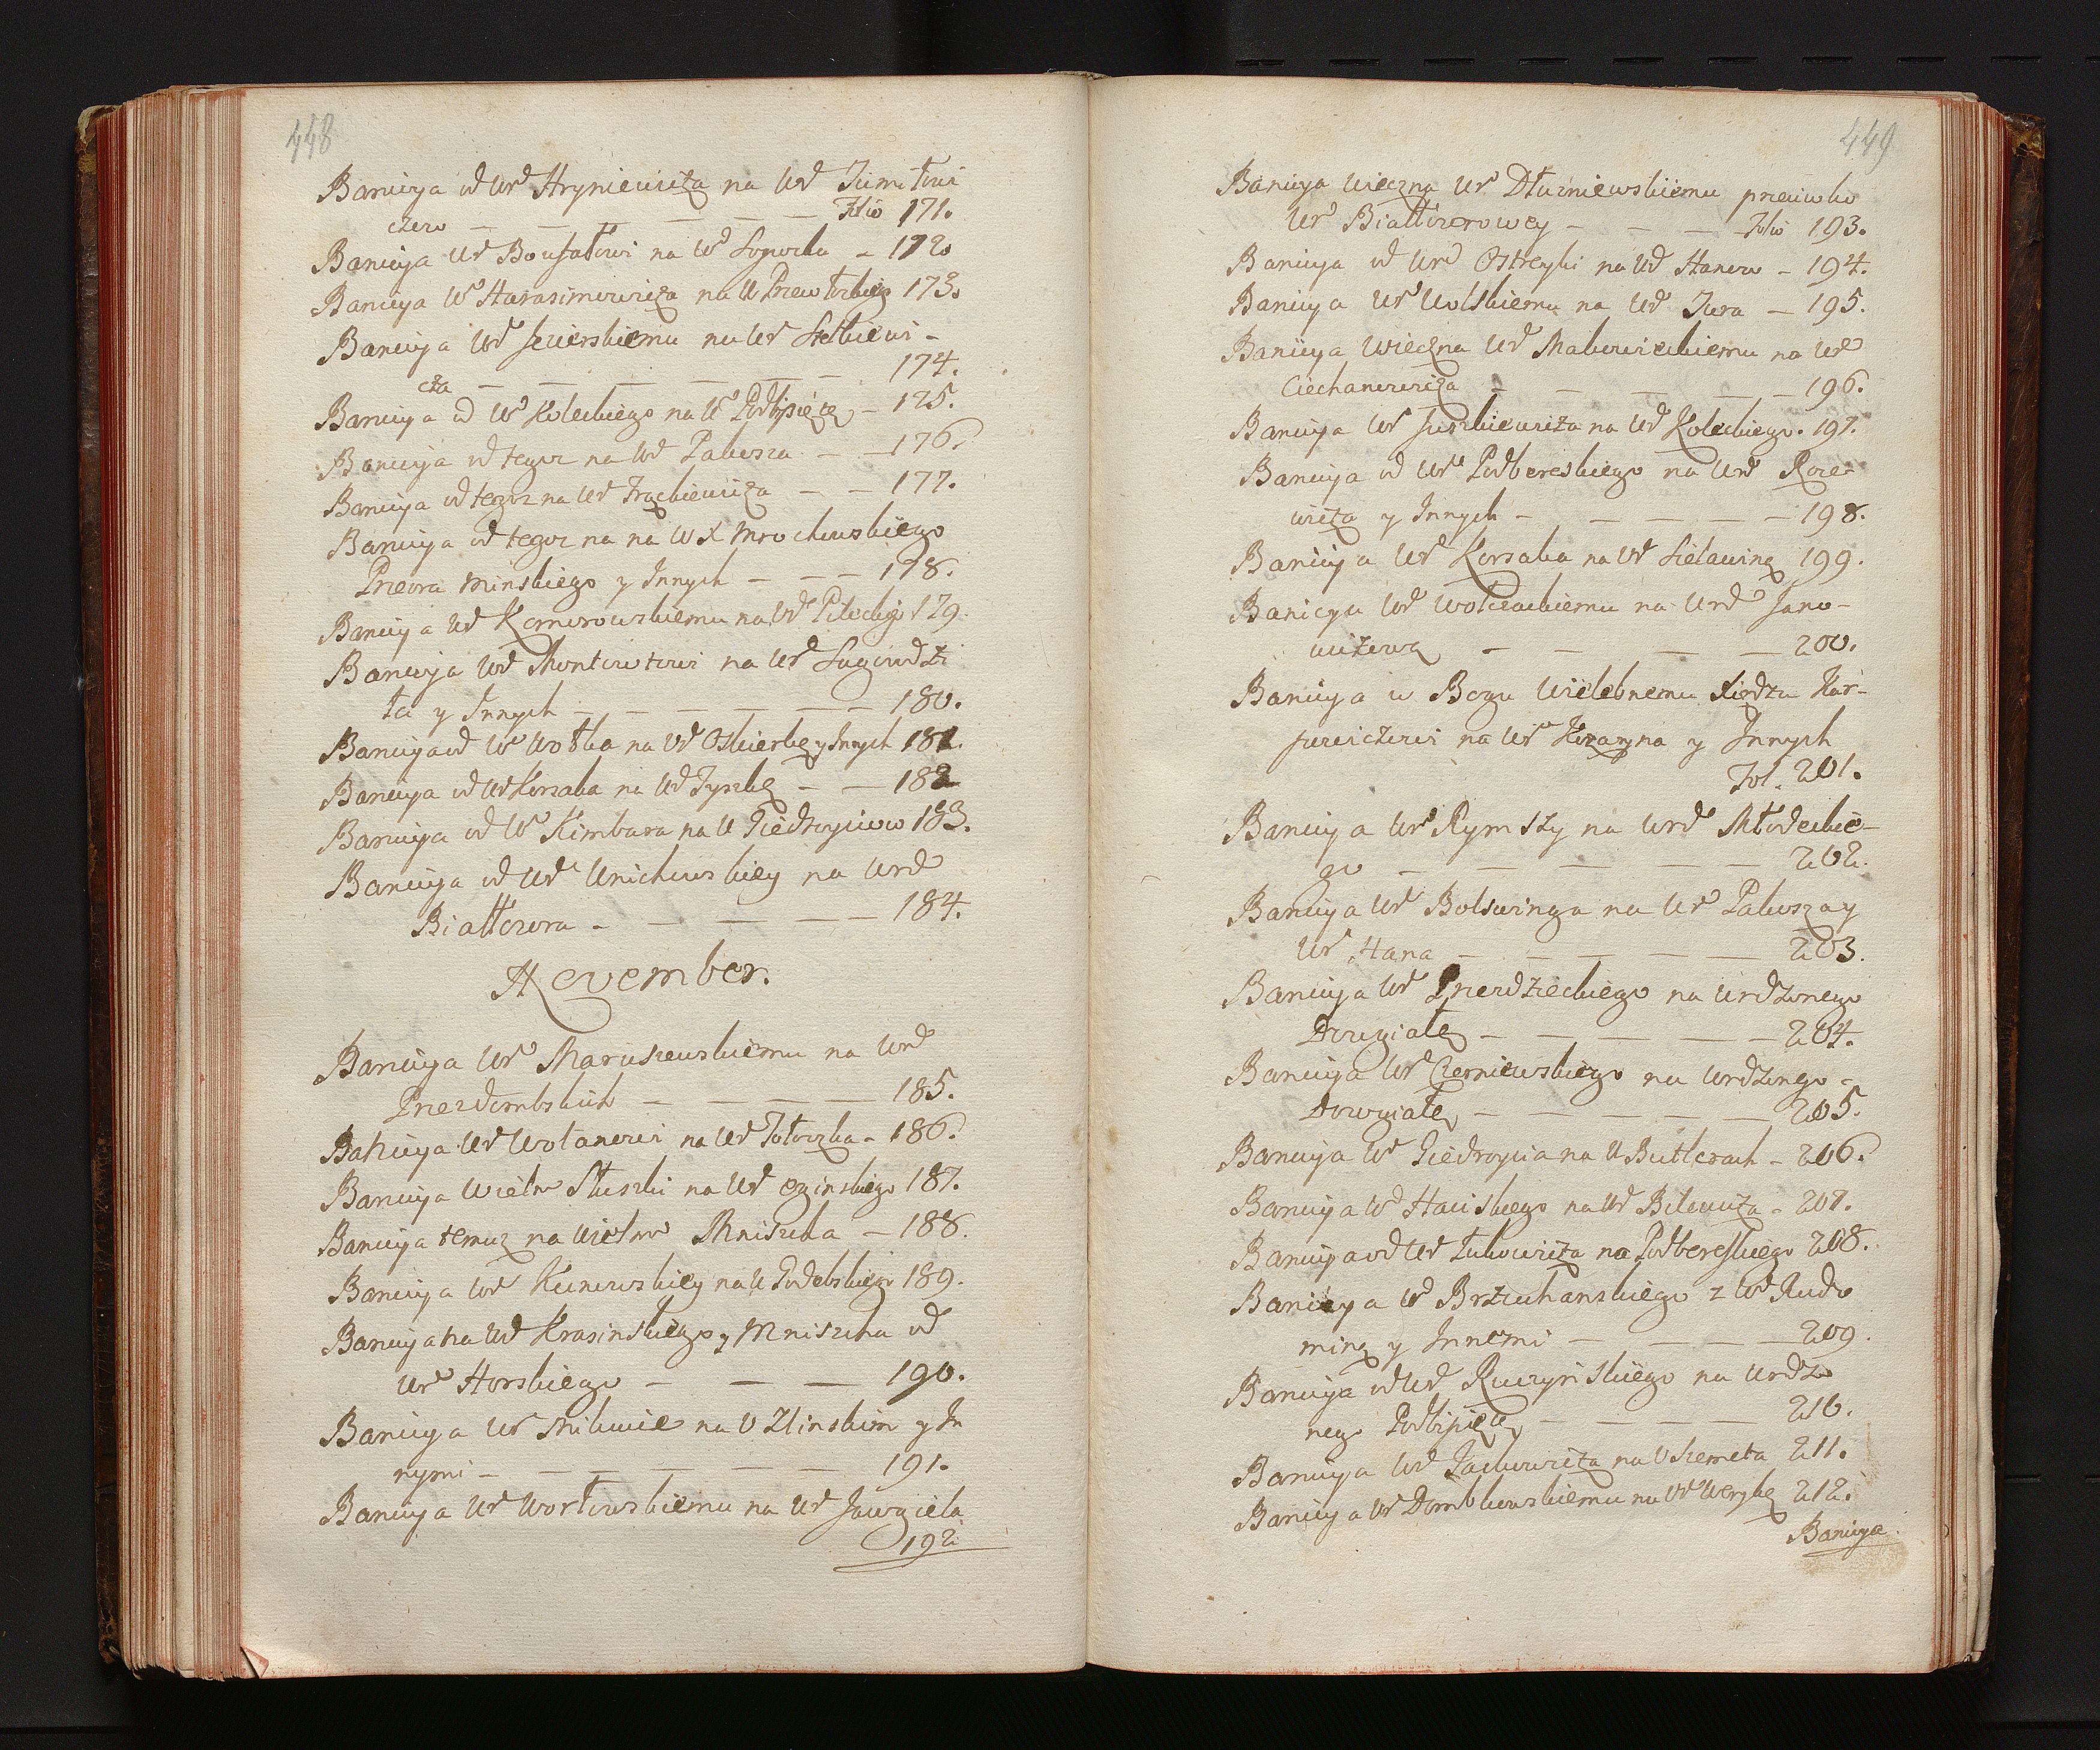 448
Banicya od Urd Hryniewicza na Urd
czow — — — — — Folio 171.
Banicya Ur Bouffałowi na Ur Sopocka - 172.
Banicya Ur Harasimowicza na U 173.
Banicya Urd Jezierskiemu na Ur Sielkiewi-
cza — — — — — 174.
Banicya od Ur Koleckiego na Ur Podbipiętę - 175.
Banicya od tegoż na Urd Pakosza — — 176.
Banicya od tegoż na Urd Frąckiewicza — — 177.
Banicya od tegoż na na W X Mrochowskiego
Przeora Minskiego y Innych — — — 178.
Banicya Ur Komorowskiemu na Ur Pileckigo 179.
Banicya Urd Montowtowi na Urd
ta y Innych — — — — — 180.
Banicya od Ur Wołka na Ur Oskierkę y Innych 181.
Banicya od Ur Korsaka na Ur Tyszkę — — 182
Banicya od Ur Kimbara na U Giedroyciow 183.
Banicya od Urd Unichowskiey na Urd
Białłozora — — — — — 184.
November.
Banicya Urd Maruszewskiemu na Urd
Przezdomskich — — — — 185.
Banicya Urd Wołanowi na Urd Tołoczka - 186.
Banicya Wielm Słuszki na Urd Oginskiego 187.
Banicya temuż na Wielm Mniszka — 188.
Banicya Urd Kunowskiey na U Podebskiego 189.
Banicya na Urd Krasinskiego y Mniszcha od
Urd Horskiego — — — 190.
Banicya Ur Milewie na U Zlinskim y In
nymi — — — — — 191.
Banicya Ur Worłowskiemu na Urd Jawgiela
192.
449
Banicya Wieczna Ur Dłuzniewskiemu przeciwko
Urd Białłozorowey — — — Folio 193.
Banicya od Urd Ostreyki na Urd Hanow — 194.
Banicya Ur Wolskiemu na Urd Jura — 195.
Banicya Wieczna Urd Makowieckiemu na Urd
Ciechanowicza — — — — — 196.
Banicya Ur Juszkiewicza na Urd Koleckiego. 197.
Banicya od Ur Podbereskiego na Urd Roze-
wicza y Innych — — — — — 198.
Banicya Urd Korsaka na Urd Sielawinę 199.
Banicya Urd Wołczackiemu na Urd Jano-
wiczową — — — — 200.
Banicya w Bogu Wielebnemu Xiędzu Kar-
powiczowi na Ur Kozaryna y Innych
Fol. 201.
Banicya Urd Rymszy na Urd Młodeckie-
go — — — — — 202.
Banicya Urd Bolswinga na Ur Pakosza y
Ur Hana — — — — — 203.
Banicya Urd Przezdzieckiego na Urdzonego
Dowgiałę — — — — — 204.
Banicya Urd Czerniewskiego na Urdzonego
Dowgiałę — — — — — 205.
Banicya Ur Giedroycia na U Butlerach - 206.
Banicya Ur Haciskiego na Urd Bilewicza - 207.
Banicya od Ur Łukowicza na Podbereskiego 208.
Banicya Ur Brzuchanskiego z Urd Rudo
miną y Innemi — — — — 209.
Banicya od Urd Ruczynskiego na Urdzo
nego Podbipiętę — — — — 210.
Banicya Urd Jackowicza na U Szemeta 211.
Banicya Ur Dombkowskiemu na Ur Werykę 212.
Banicya